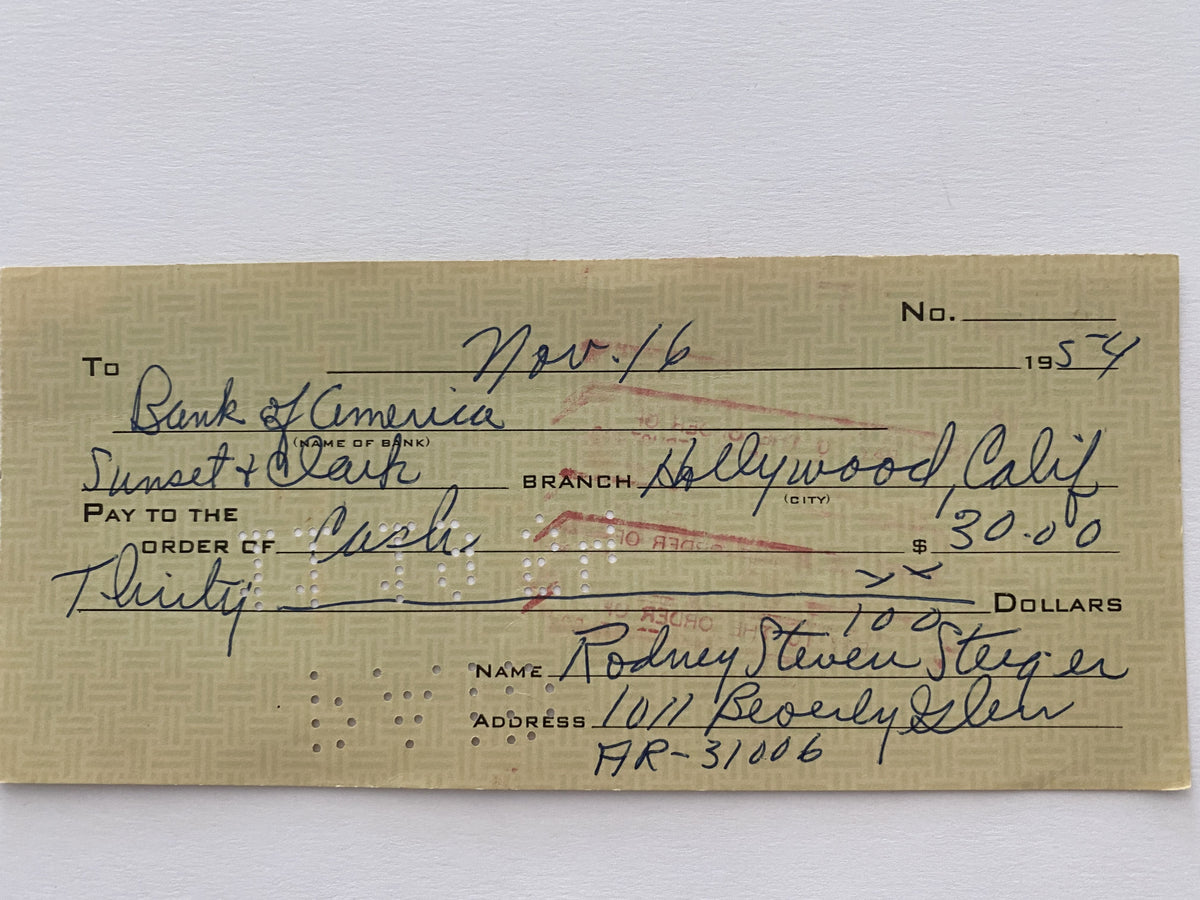 No.
Nov. 16 1954
To
Bank of America
(NAME OF BANK)
Sunset + Clark BRANCH Hollywood, Calif
(CITY)
PAY TO THE
ORDER OF Cash $ 30.00
Thirty xx/100 DOLLARS
NAME Rodney Steven Steiger
ADDRESS 1011 Beverly Glen
AR-31006